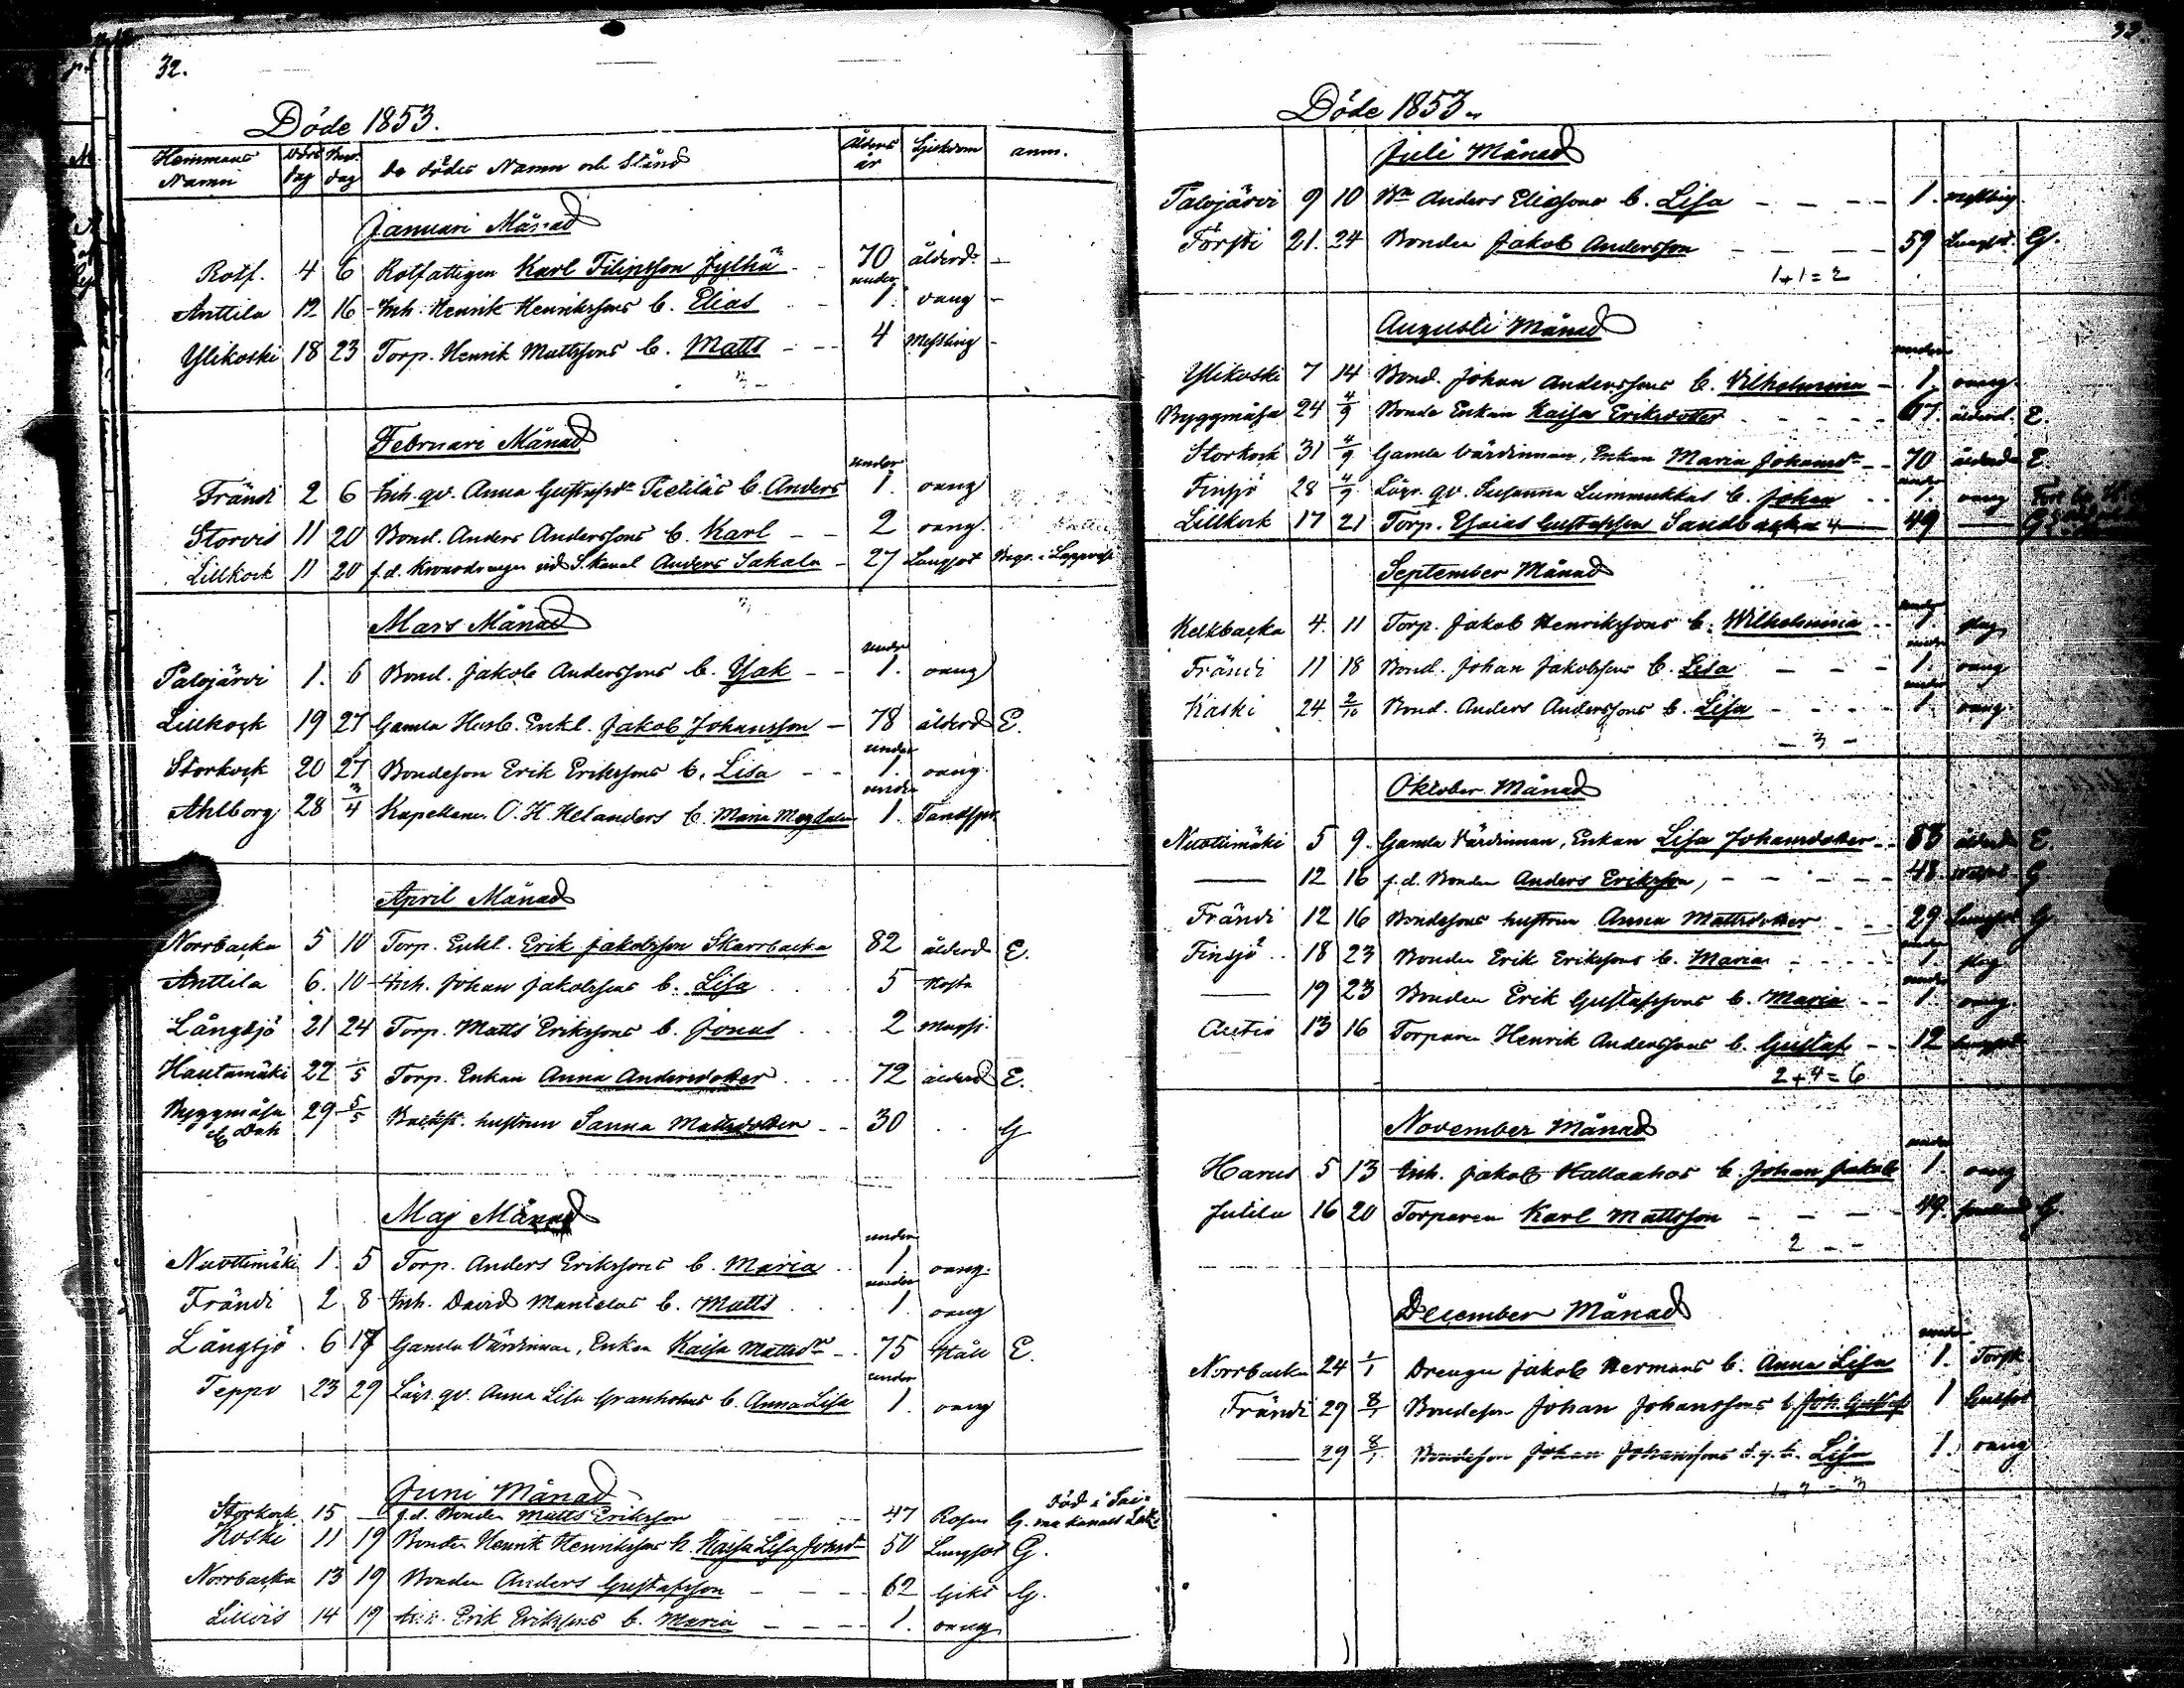 32.
Döde 1853.
Hemmans Namn dag dag de dödes Namn och Stånd Ålders år Sjukdom anm.
Januari Månad
Rotf. 4 6 Rotfattigen Karl Filipsson Jylhä 70 ålderd. -
Anttila 12 16 Inh. Henrik Henrikssons b. Elias under 1 oang -
Ylikoski 18 23 Torp. Henrik Mattssons b. Matts - - 4 Messling -
Februari Månad
Frändi 2 6 Inh. qv. Anna Gustafsdr b. Anders under 1. oang
Storvis 11 20 Bond. Anders Anderssons b. Karl - - 2 oang.
Lillkock 11 20 f.d. vid S. Kanal Anders Sakala - 27 Lungsot
Mars Månad
Palojärvi 1. 6 Bond. Jakob Anderssons b. Isak - - under 1. oang
Lillkock 19 27 Gamla Husb. Enkl. Jakob Johansson - 78 ålderd E.
Storkock 20 27 Bondeson Erik Erikssons b. Lisa - - under 1. oang.
Ahlborg 28 3/4 Kapellanen O. H. Helanders b. Maria Magdalena under 1. Tandspr.
April Månad
Norrbacka 5 10 Torp. Enkl. Erik Jakobsson Skarrbacka 82 ålderd E.
Anttila 6. 10 Inh. Johan Jakobssons b. Lisa 5 Hosta
Långsjö 21 24 Torp. Matts Erikssons b. Jonas 2
Hautamäki 22 1/5 Torp. Enkan Anna Andersdotter 72 ålderd E.
Byggmäsa 29 5/5 hustrun Sanna Mattsdotter - - 30 G
Maj Månad
Nuottimäki 1. 5 Torp. Anders Erikssons b. Maria under 1 oang.
Frändi 2 8 Inh. David Mantelas b. Matts under 1. oang
Långsjö 6 17 Gamla Värdinnan, Enkan Kaisa Mattsdr - 75 Håll E.
Teppo 23 29 Lägr. qv. Anna Lisa Granholms b. Anna Lisa under 1. oang
Juni Månad
Storkock 15 — f.d. Bonden Matts Eriksson 47 Rosen G. död i
Koski 11 19 Bonden Henrik Henrikssons h. Kaisa Lisa 50 Lungsot G.
Norrbacka 13 19 Bonden Anders Gustafsson - - - 62 Gikt G.
Lillvis 14 19 Inh. Erik Erikssons b. Maria - - - 1. oang
33.
Döde 1853.
Juli Månad
Palojärvi 9 10 Bn Anders Eliassons b. Lisa - - - - 1. messling.
Torsti 21. 24 Bonden Jakob Andersson - - - - 59 Lungsot. G.
1+1=2
Augusti Månad
Ylikoski 7 14 Bond. Johan Anderssons b. Vilhelmina - under 1. oang.
Byggmäsa 24 4/9 Bonde Enkan Kaisa Eriksdotter 67. ålderd. E.
Storkock 31 4/9 Gamla Värdinnan, Enkan Maria Johansdr - - 70 ålderd E
Finsjö 28 4/9 Lägr. qv. Susanna b. Johan - - under 1. oang
Lillkock 17 21 Torp. Esaias Gustafsson Sandbacka 49 — G
September Månad
Kellbacka 4. 11 Torp. Jakob Henrikssons b. Wilhelmina - - under 1. slag
Frändi 11 18 Bond. Johan Jakobssons b. Lisa - - - under 1. oang
Käski 24 2/10 Bond. Anders Anderssons b. Lisa - - - - under 1 oang.
- 3 -
Oktober Månad
Nuottimäki 5 9. Gamla Värdinnan, Enkan Lisa Johansdotter - - 83 ålderd E.
— 12 16 f.d. Bonden Anders Eriksson, - - - - 48. G
Frändi 12 16 Bondesons hustrun Anna Mattsdotter 29 Lungsot G
Finsjö 18 23 Bonden Erik Erikssons b. Maria - - - - under 1. slag
— 19 23 Bonden Erik Gustafssons b. Maria - - under 1. oang.
Autio 13 16 Torparen Henrik Anderssons b. Gustaf - - 12 Lungsot
2+4=6
November Månad
Harus 5 13 Inh. Jakob Kallaahos b. Johan Jakob under 1. oang
Julila 16 20 Torparen Karl Mattsson - - - - 49. G.
2 - -
December Månad
Norrbacka 24 1/1 Drengen Jakob Hermans b. Anna Lisa under 1. Torsk
Frändi 29 8/1 Bondeson Johan Johanssons b. Joh. Gustaf 1
— 29 8/1 Bondeson Johan Johanssons d.y. b. Lisa 1. oang